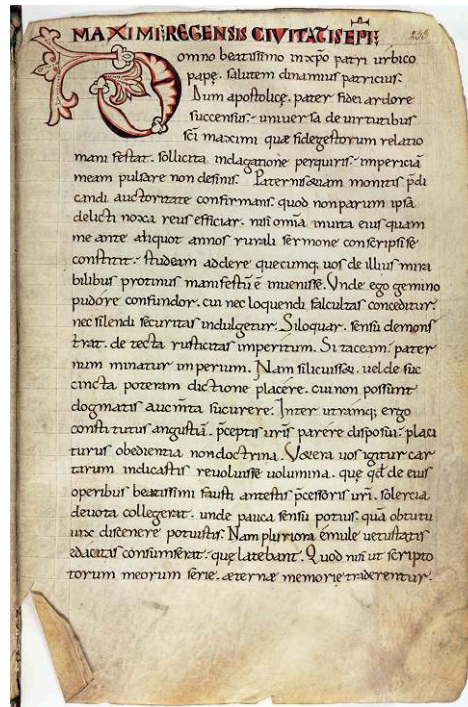 MAXIMI: REGENSIS CIVITATIS EPI;
233
Domno beatissimo in xpo patri urbico
papę. salutem dinamius patricius.
Dum apostolicę. pater fidei ardore
succensus. universa de virtutibus
sci maximi quae fide gestorum relatio
mani festat. sollicita indagatione perquiris. impericiā
meam pulsare non desinis. Paternis quam monitis p̄di
candi auctoritate confirmans. quod non parum ipsā
delicti noxa reus efficiar. nisi omia inuita eius quam
me ante aliquot annos rurali sermone conscripsisse
constitit. studeam addere quecumq; uos de illius mira
bilibus protinus manifestū ē inuenisse. Vnde ego gemino
pudore confundor. cui nec loquendi facultas conceditur.
nec silendi securitas indulgetur. Si loquar. sensū demons
trat. de tecta rusticitas imperitum. Si taceam. pater
num minatur imperium. Nam si licuisset uel de suc
cincta poteram dictione placere. cui non possunt
dogmatis aucm̄ta sucurere. Inter utramq; ergo
consti tutus angustiā. p̄ceptis uris parere disposui. placi
turus obedientia non doctrina. Verera uos igitur car
tarum indicastis reuoluisse uolumina. quę qd̄ de eius
operibus beatissimi fausti antestis p̄cessoris uri. solercia
deuota collegerat. unde pauca sensu potius. quā obtutu
uix discenere potuistis. Nam pluriora ęmule uetustatis
edacitas consumserat. quę latebant. Quod nisi ut scripto
torum meorum serie. aeternae memorie traderentur.